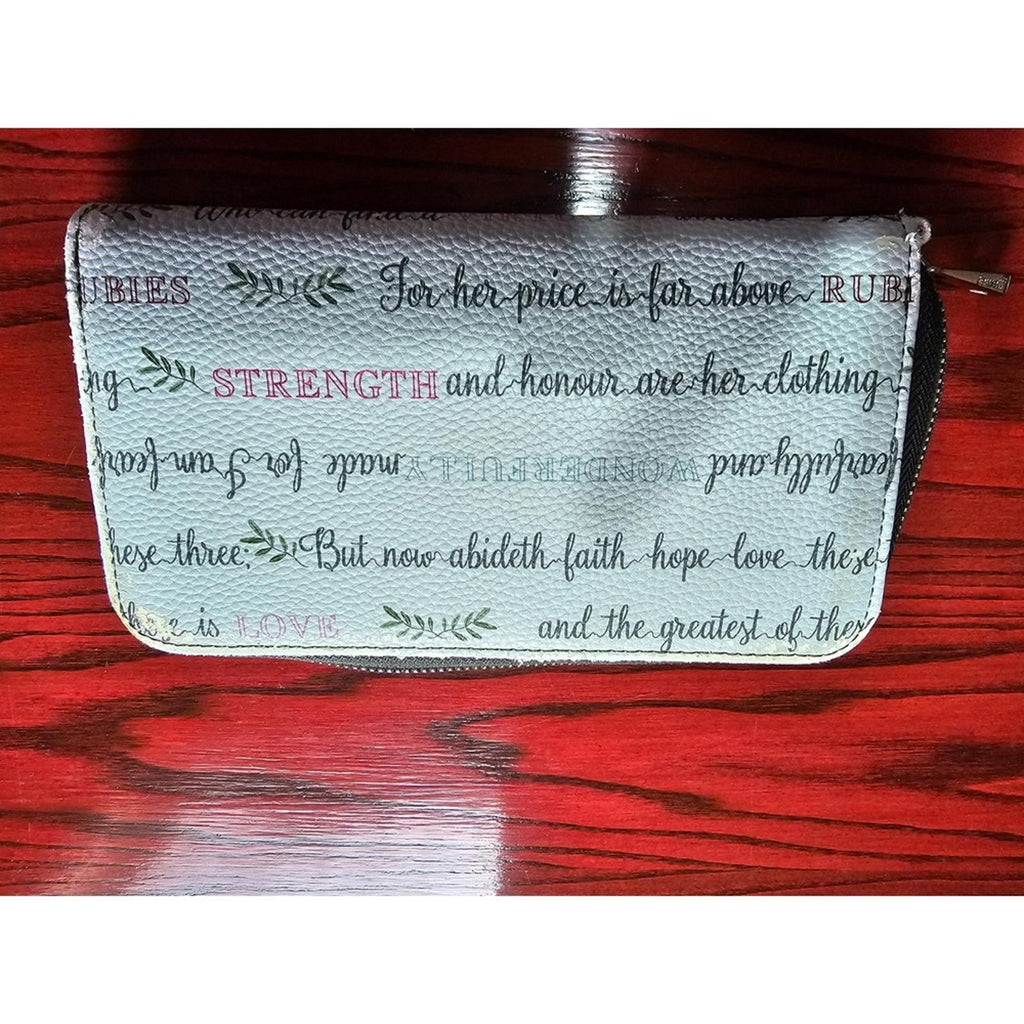 Who can find a
UBIES For her price is far above RUBI
ng STRENGTH and honour are her clothing
earfully and WONDERFULLY made for I am fearf
hese three; But now abideth faith hope love these
these is LOVE and the greatest of thes